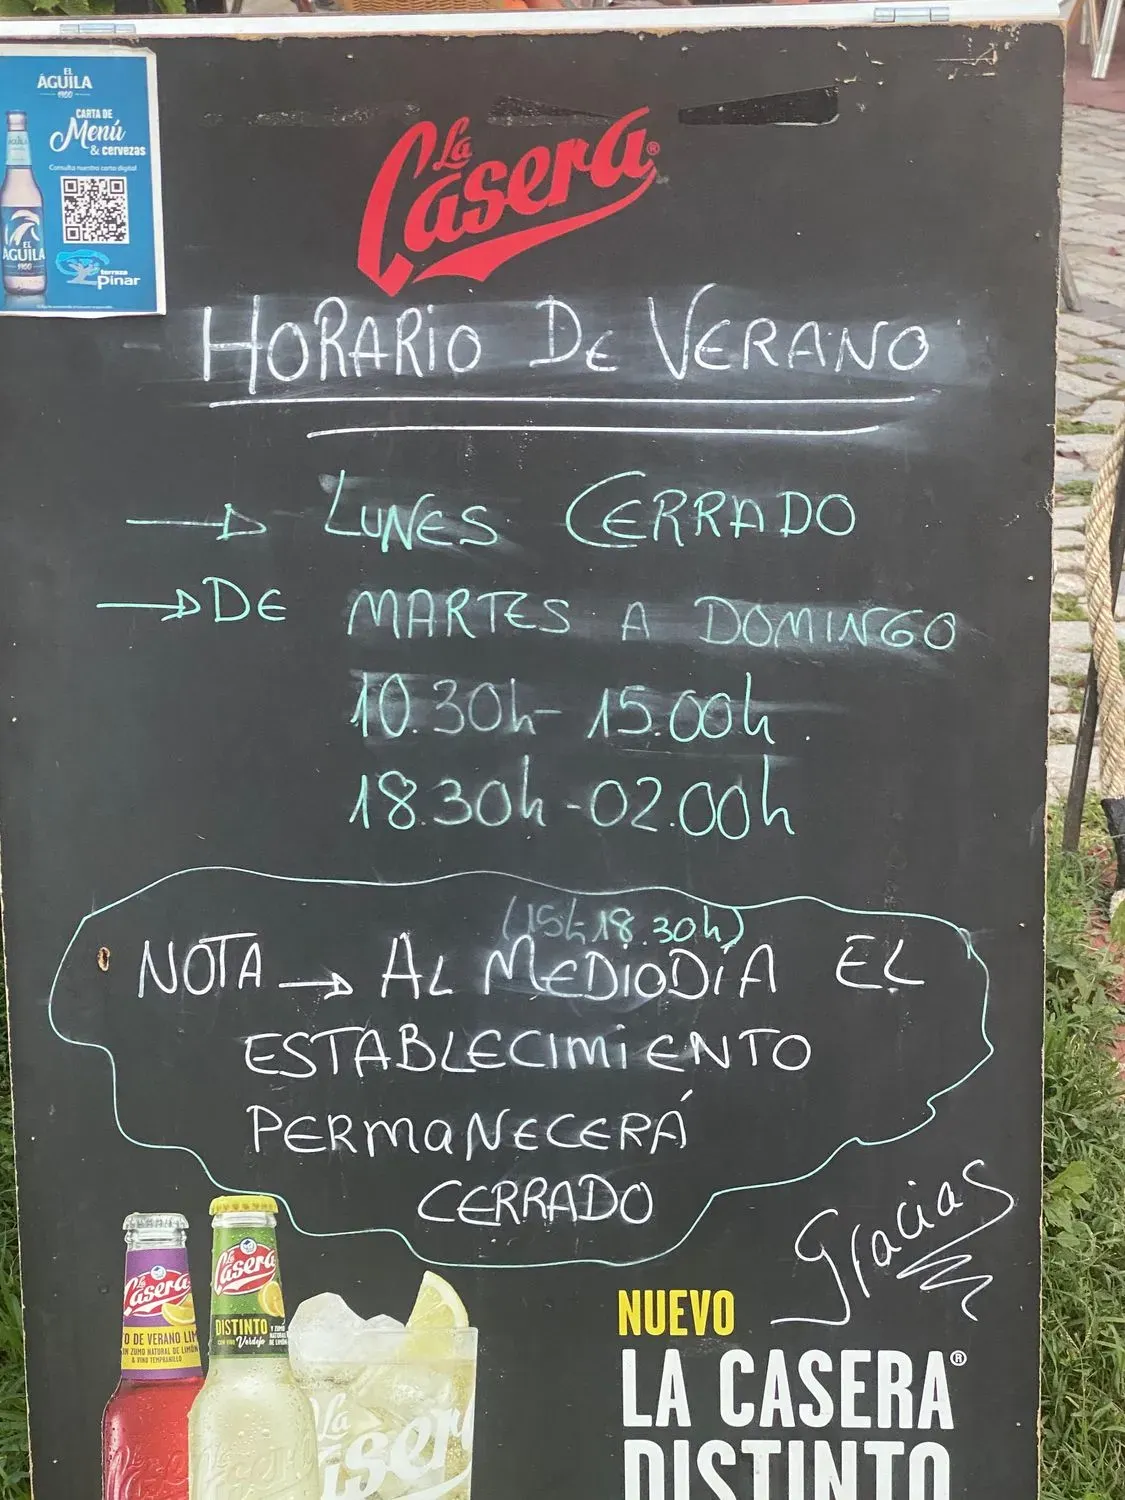 EL
ÁGUILA
1900
CARTA DE
Menú
& cervezas
Consulta nuestra carta digital
EL
AGUILA
1900
terraza
Pinar
La
Casera®
HORARIO DE VERANO
LUNES CERRADO
DE MARTES A DOMINGO
10.30h - 15.00h.
18.30h - 02.00h
(15h 18.30h)
NOTA → AL MEDIODÍA EL
ESTABLECIMIENTO
PERMANECERÁ
CERRADO
Gracias
La
Casera
O DE VERANO LIM
ZUMO NATURAL DE LIMÓN
& VINO TEMPRANILLO
La
Casera
DISTINTO
CON VINO Verdejo
Y ZUMO
NATURAL
DE LIMÓN
La
Caser
NUEVO
LA CASERA®
DISTINTO